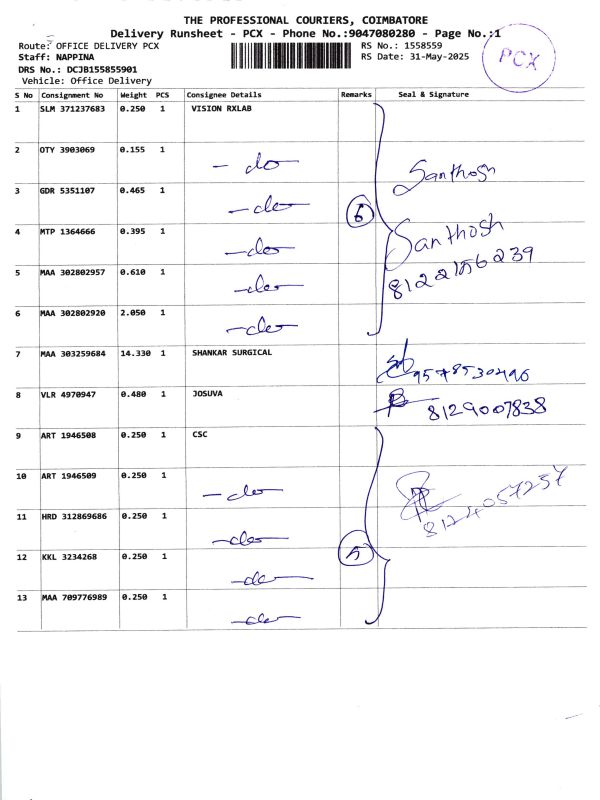 THE PROFESSIONAL COURIERS, COIMBATORE
Delivery Runsheet - PCX - Phone No.:9047080280 - Page No.:1
Route: OFFICE DELIVERY PCX RS No.: 1558559
Staff: NAPPINA RS Date: 31-May-2025
DRS No.: DCJB155855901
Vehicle: Office Delivery
PCX
S No Consignment No Weight PCS Consignee Details Remarks Seal & Signature
1 SLM 371237683 0.250 1 VISION RXLAB
2 OTY 3903069 0.155 1 - do
Santhosh
3 GDR 5351107 0.465 1 - do
6
4 MTP 1364666 0.395 1 - do Santhosh
5 MAA 302802957 0.610 1 - do 8122156239
6 MAA 302802920 2.050 1 - do
7 MAA 303259684 14.330 1 SHANKAR SURGICAL 9578530496
8 VLR 4970947 0.480 1 JOSUVA 8129007838
9 ART 1946508 0.250 1 CSC
10 ART 1946509 0.250 1 - do 8124057257
11 HRD 312869686 0.250 1 - do
5
12 KKL 3234268 0.250 1 - do
13 MAA 709776989 0.250 1 - do